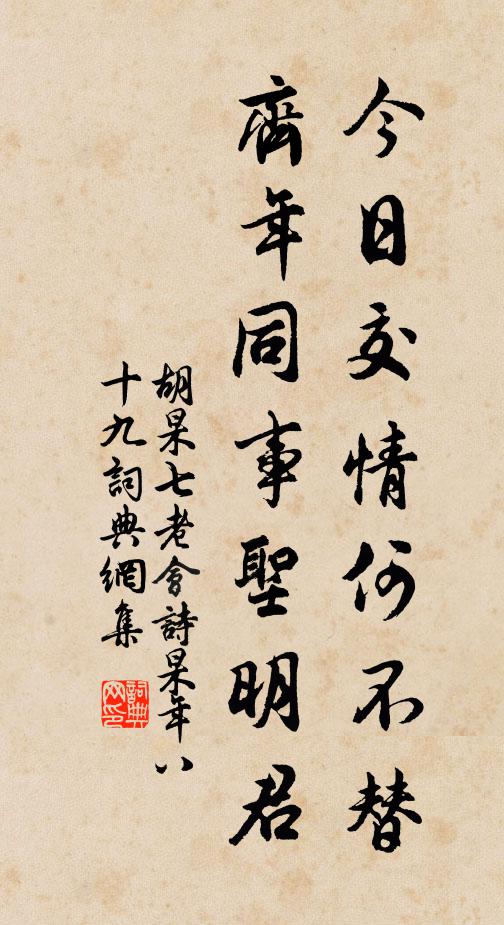 今日交情何不替
齊年同事聖明君
胡杲七老會詩杲年八
十九詞典網集
詞典网印